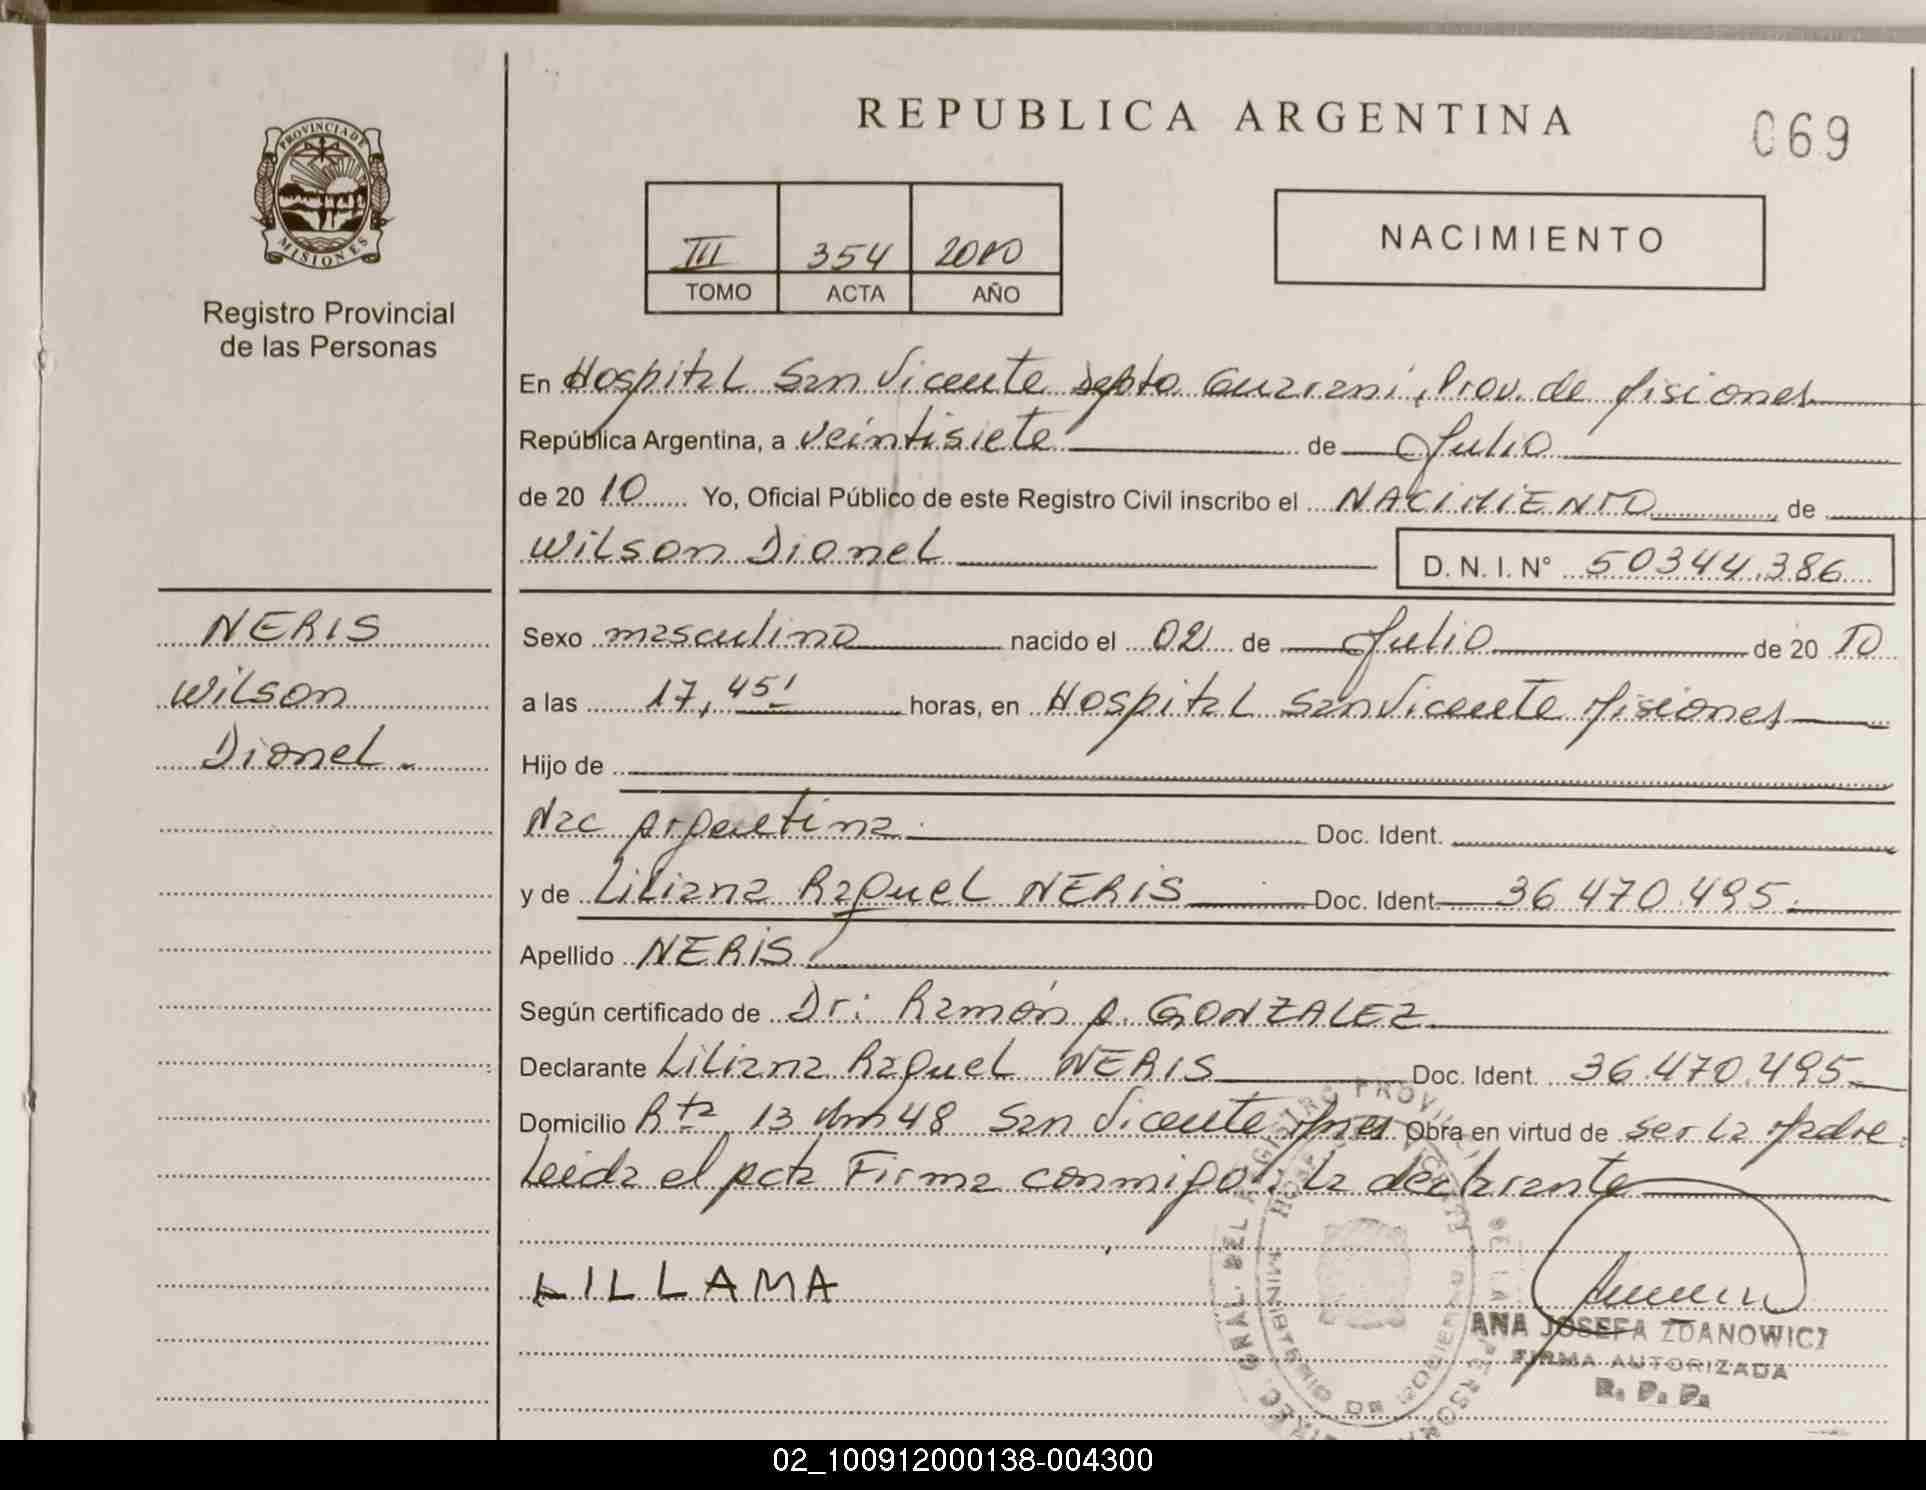 REPUBLICA ARGENTINA
069
PROVINCIA DE
MISIONES
Registro Provincial
de las Personas
III 354 2010
TOMO ACTA AÑO
NACIMIENTO
En Hospital San Vicente Depto Guarani, Prov. de Misiones
República Argentina, a veintisiete de Julio
de 20 10 Yo, Oficial Público de este Registro Civil inscribo el NACIMIENTO de
Wilson Dionel D. N. I. N° 50344.386
NERIS
Wilson
Dionel.
Sexo masculino nacido el 02 de Julio de 20 10
a las 17,45' horas, en Hospital San Vicente Misiones
Hijo de
Nac Argentina. Doc. Ident.
y de Liliana Raquel NERIS Doc. Ident 36.470.495.
Apellido NERIS
Según certificado de Dr: Ramón A. GONZALEZ
Declarante Liliana Raquel NERIS Doc. Ident. 36.470.495
Domicilio Rta 13 Km 48 San Vicente Mnes Obra en virtud de ser la Madre.
Leida el Acta Firma conmigo: La declarante
LILLAMA
ANA JOSEFA ZDANOWICZ
FIRMA AUTORIZADA
R. P. P.
02_100912000138-004300